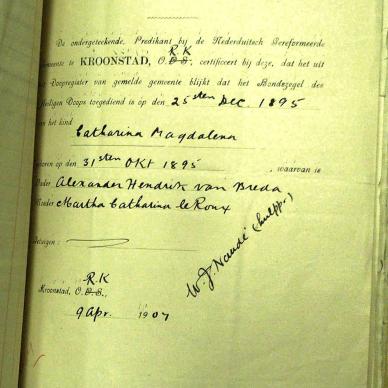 De ondergeteekende, Predikant bij de Nederduitsch Gereformeerde
R K
emeente te KROONSTAD, O. V. S., certificeert bij deze, dat het uit
Doopregister van gemelde gemeente blijkt dat het Bondszegel des
eiligen Doops toegediend is op den 25sten Dec. 1895
an het kind
Catharina Magdalena
eboren op den 31sten Okt 1895, waarvan is
Vader Alexander Hendrik van Breda
Moeder Martha Catharina le Roux
Getuigen :
W. J. Naudé (hulppr.)
R. K
Kroonstad, O. V. S.,
9 Apr. 1907